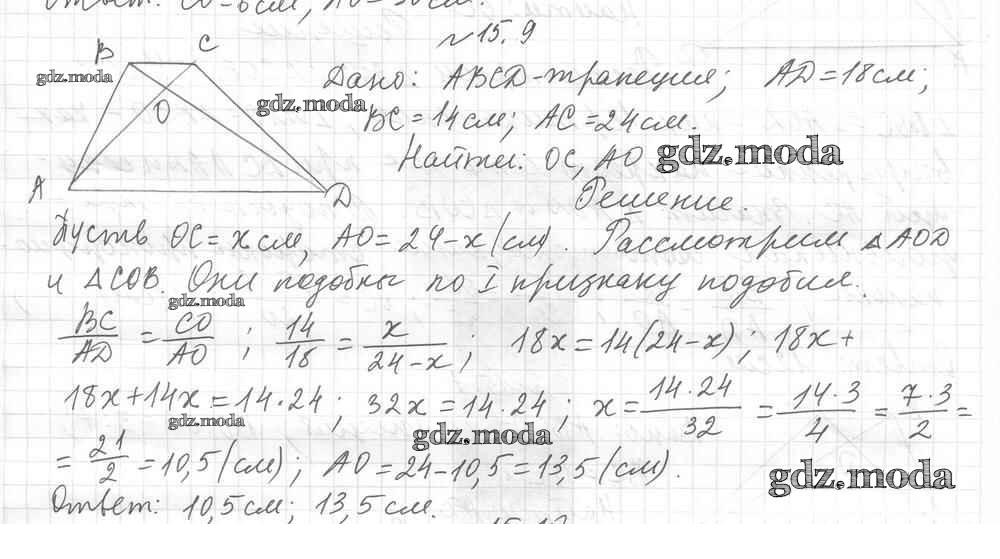 Ответ: CO-6см, AO-30см.
№15.9
B C
O
A D
Дано: ABCD-трапеция; AD=18см;
BC=14см; AC=24см.
Найти: OC, AO
Решение.
Пусть OC=x см, AO=24-x (см). Рассмотрим △AOD
и △COB. Они подобны по I признаку подобия.
BC/AD = CO/AO ; 14/18 = x/(24-x) ; 18x=14(24-x) ; 18x+
18x+14x=14·24 ; 32x=14·24 ; x= 14·24/32 = 14·3/4 = 7·3/2 =
= 21/2 =10,5 (см) ; AO=24-10,5=13,5 (см).
Ответ: 10,5см; 13,5см.
gdz.moda
gdz.moda
gdz.moda
gdz.moda
gdz.moda
gdz.moda
gdz.moda